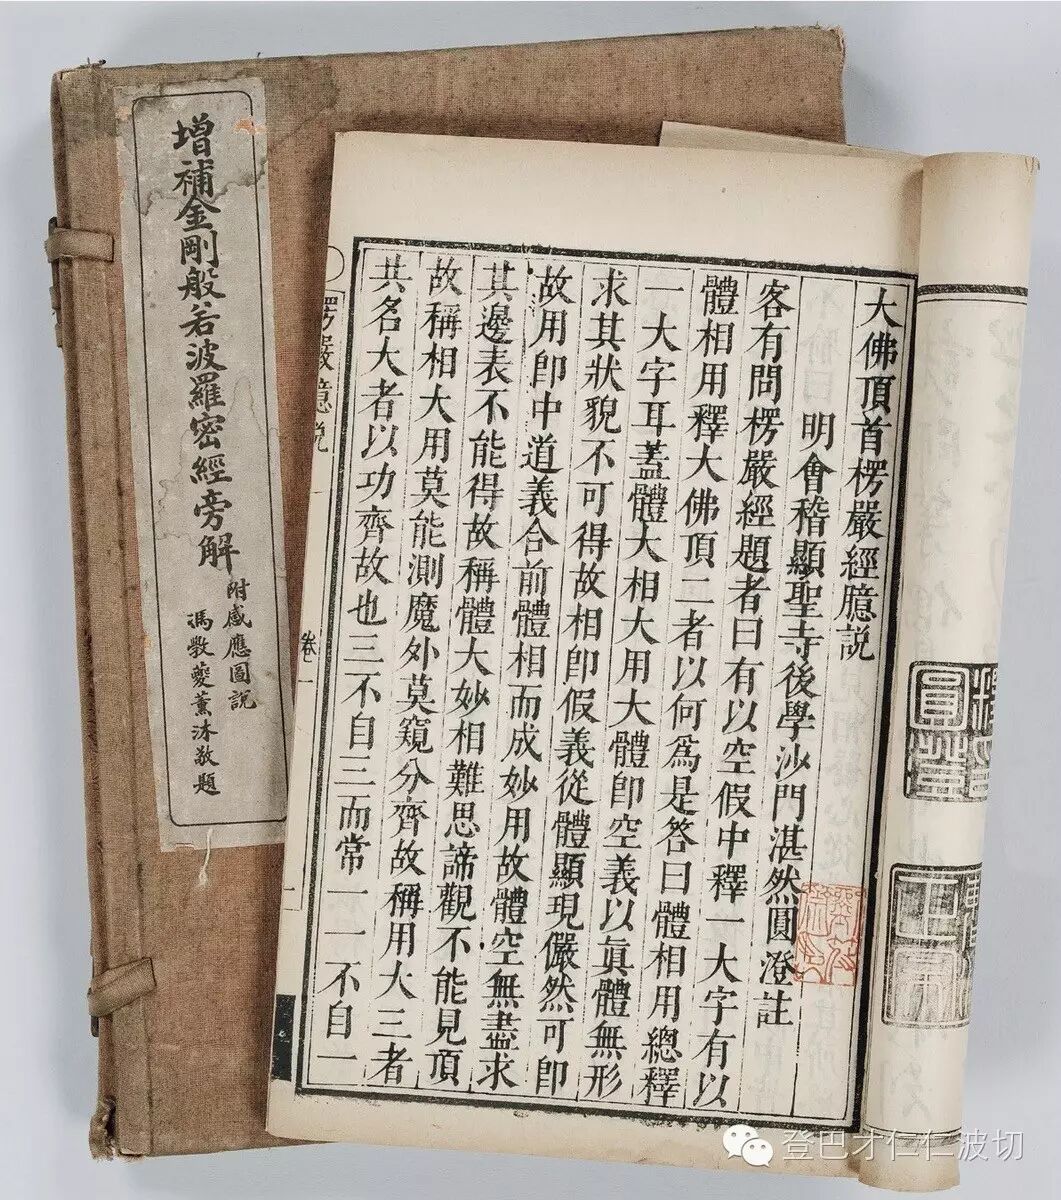 大佛頂首楞嚴經臆説
明會稽顯聖寺後學沙門湛然圓澄註
客有問楞嚴經題者曰有以空假中釋一大字有以
體相用釋大佛頂二者以何為是答曰體相用總釋
一大字耳蓋體大相大用大體即空義以真體無形
求其狀貌不可得故相即假義從體顯現儼然可即
故用即中道義合前體相而成妙用故體空無盡求
其邊表不能得故稱體大妙相難思諦觀不能見頂
故稱相大用莫能測魔外莫窺分齊故稱用大三者
共名大者以功齊故也三不自三而常一一不自一
楞嚴臆説
卷一
增補金剛般若波羅密經旁解
附感應圖説
馮斅夔薰沐敬題
登巴才仁仁波切